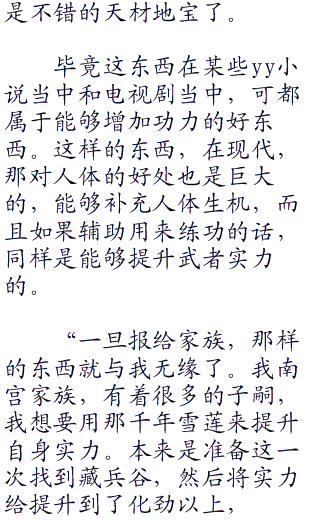 是不错的天材地宝了。
毕竟这东西在某些yy小
说当中和电视剧当中，可都
属于能够增加功力的好东
西。这样的东西，在现代，
那对人体的好处也是巨大
的，能够补充人体生机，而
且如果辅助用来练功的话，
同样是能够提升武者实力
的。
“一旦报给家族，那样
的东西就与我无缘了。我南
宫家族，有着很多的子嗣，
我想要用那千年雪莲来提升
自身实力。本来是准备这一
次找到藏兵谷，然后将实力
给提升到了化劲以上，